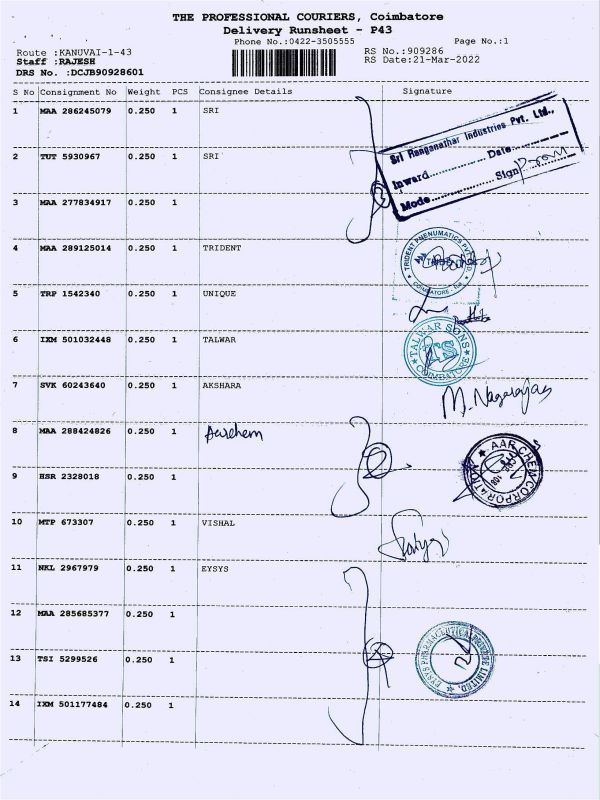 THE PROFESSIONAL COURIERS, Coimbatore
Delivery Runsheet - P43
Phone No.:0422-3505555 Page No.:1
Route :KANUVAI-1-43 RS No.:909286
Staff :RAJESH RS Date:21-Mar-2022
DRS No. :DCJB90928601
S No Consignment No Weight PCS Consignee Details Signature
1 MAA 286245079 0.250 1 SRI
Sri Ranganathar Industries Pvt. Ltd.,
Inward Date
Mode Sign
2 TUT 5930967 0.250 1 SRI
3 MAA 277834917 0.250 1
4 MAA 289125014 0.250 1 TRIDENT
TRIDENT PNEUMATICS PVT
COIMBATORE
5 TRP 1542340 0.250 1 UNIQUE
6 IXM 501032448 0.250 1 TALWAR
TALWAR SONS
COIMBATORE
7 SVK 60243640 0.250 1 AKSHARA M. Nagarajan
8 MAA 288424826 0.250 1 Aarchem
AAR CHEM CORPORATION
9 HSR 2328018 0.250 1
10 MTP 673307 0.250 1 VISHAL
11 NKL 2967979 0.250 1 EYSYS
12 MAA 285685377 0.250 1
EYSYS PHARMACEUTICAL PRIVATE LIMITED.
13 TSI 5299526 0.250 1
14 IXM 501177484 0.250 1